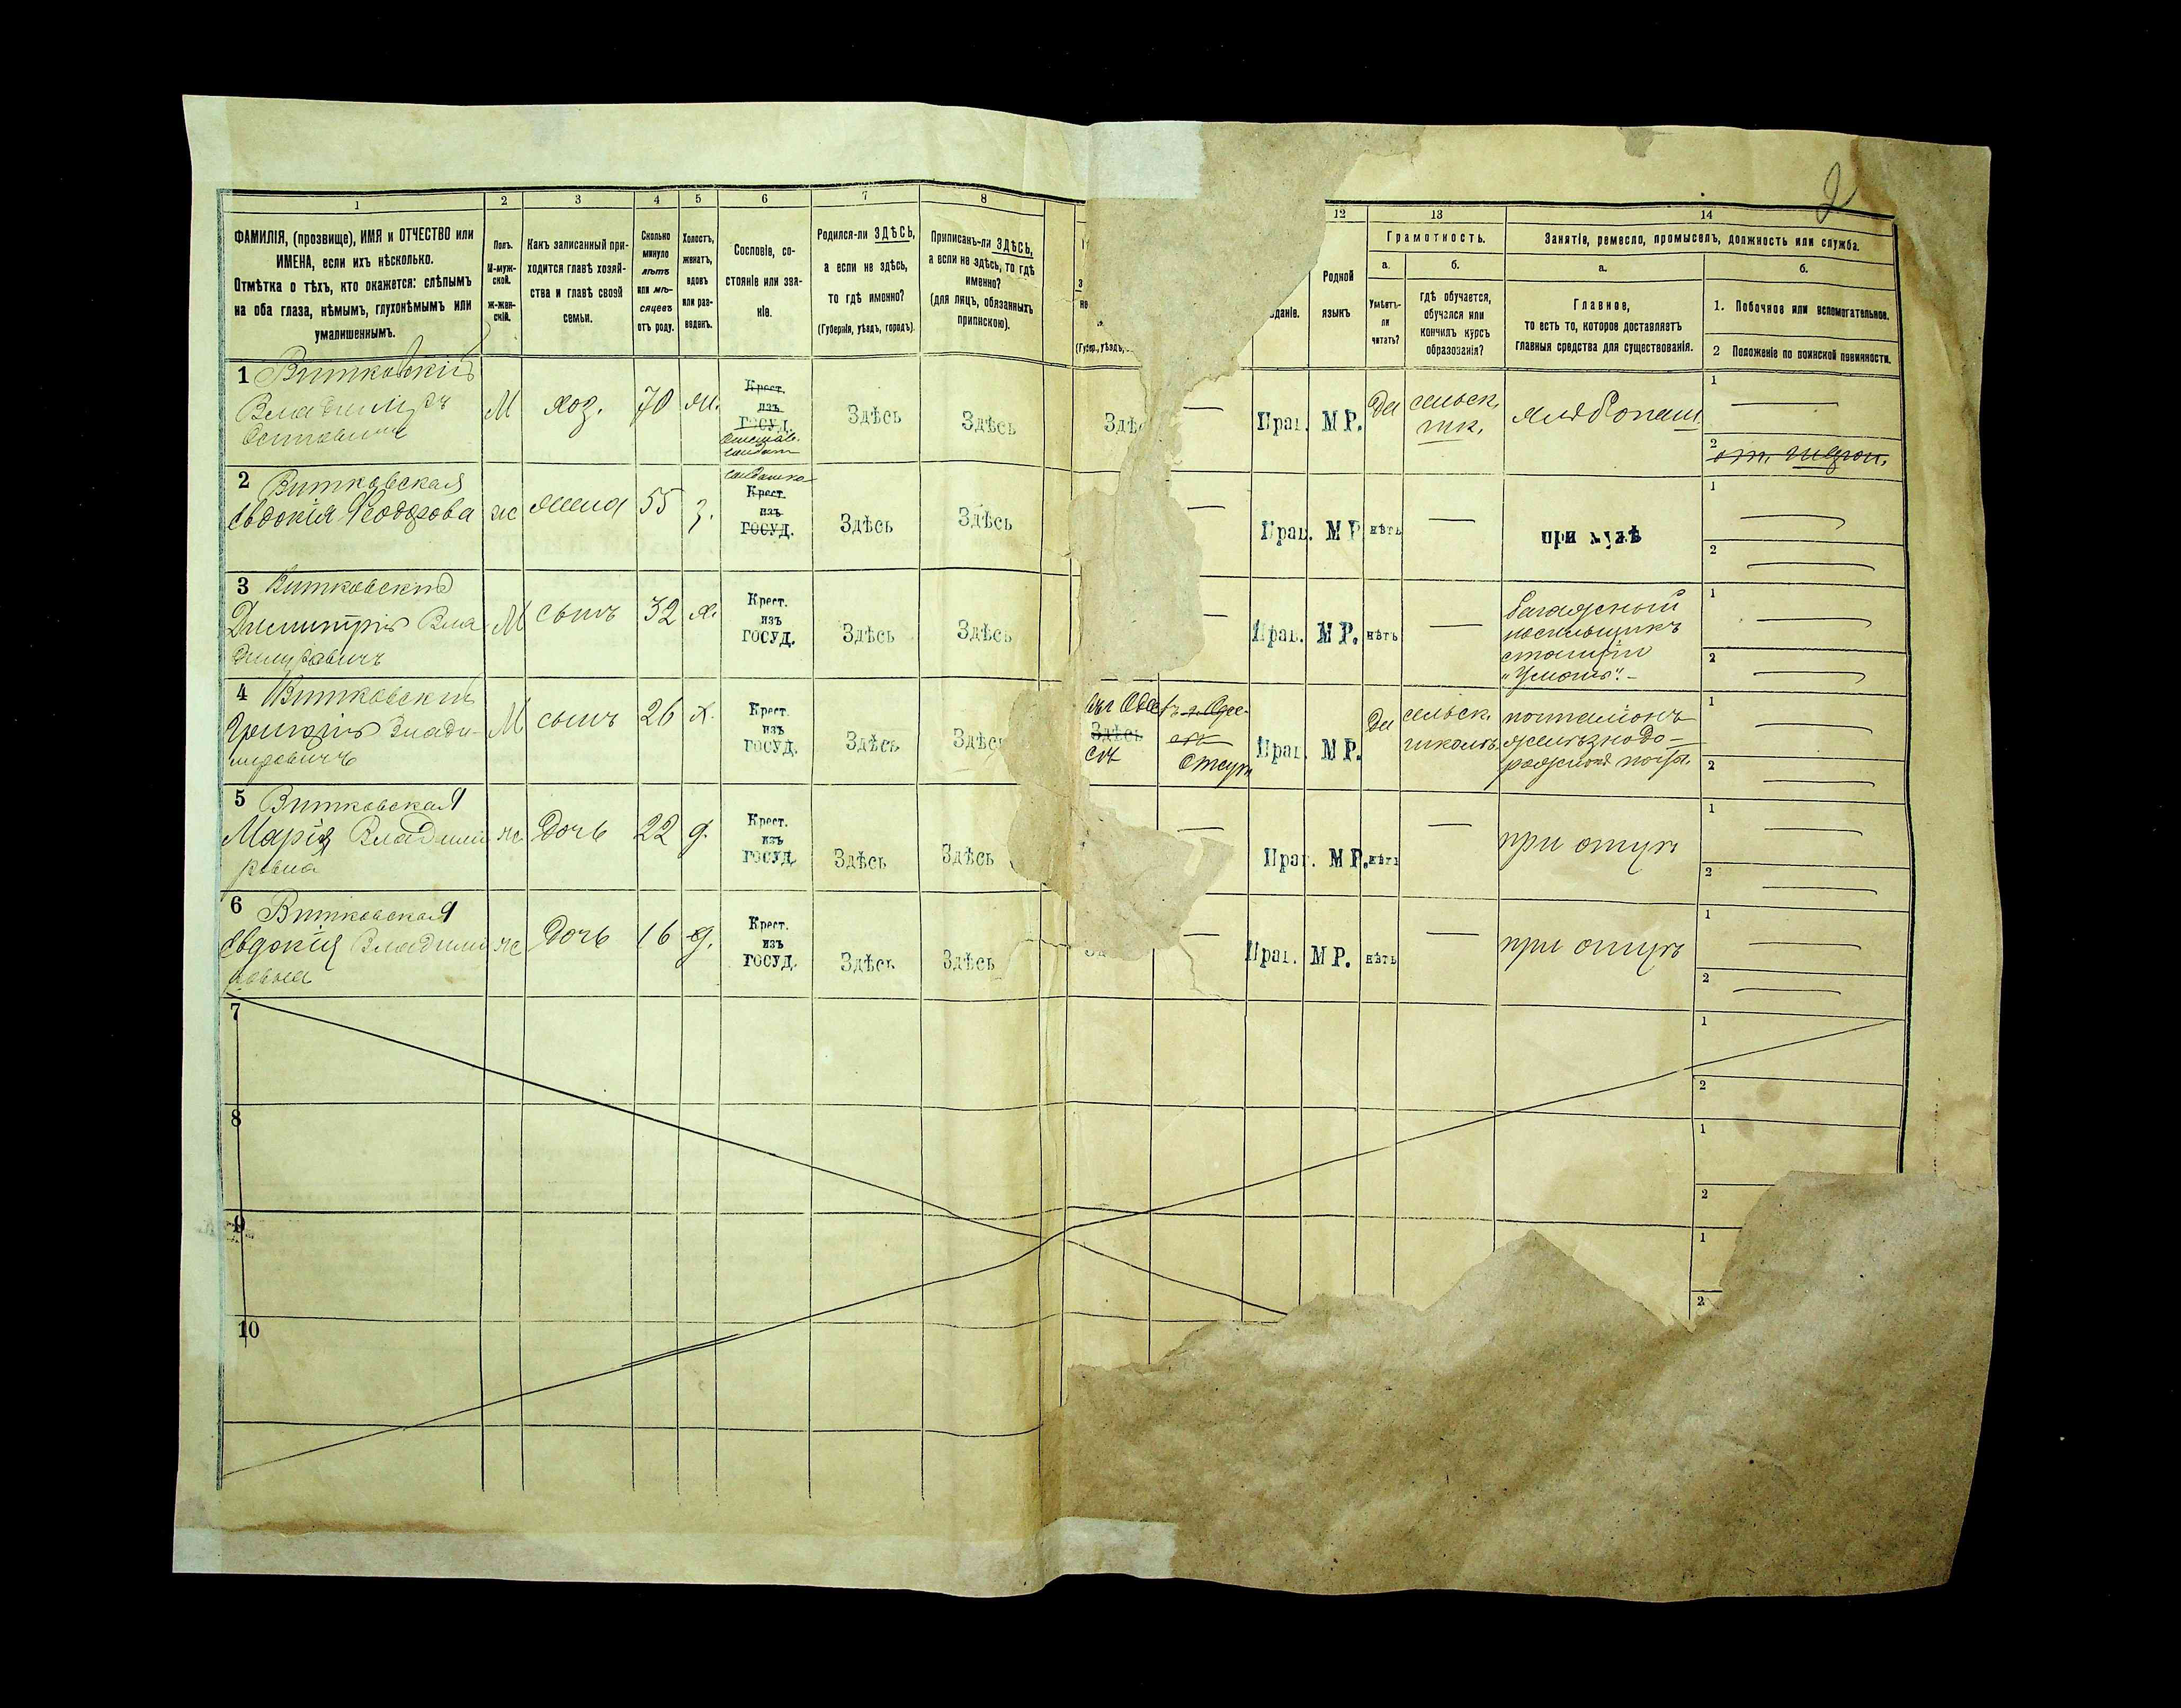 2
1 2 3 4 5 6 7 8 12 13 14
ФАМИЛІЯ, (прозвище), ИМЯ и ОТЧЕСТВО или
ИМЕНА, если ихъ нѣсколько.
Отмѣтка о тѣхъ, кто окажется: слѣпымъ
на оба глаза, нѣмымъ, глухонѣмымъ или
умалишеннымъ.
Полъ.
М-муж-
ской.
ж-жен-
скій.
Какъ записанный при-
ходится главѣ хозяй-
ства и главѣ своей
семьи.
Сколько
минуло
лѣтъ
или мѣ-
сяцевъ
отъ роду.
Холостъ,
женатъ,
вдовъ
или раз-
веденъ.
Сословіе, со-
стояніе или зва-
ніе.
Родился-ли ЗДѢСЬ,
а если не здѣсь,
то гдѣ именно?
(Губернія, уѣздъ, городъ).
Приписанъ-ли ЗДѢСЬ,
а если не здѣсь, то гдѣ
именно?
(для лицъ, обязанныхъ
припискою).
(Губер., уѣздъ,
Родной
языкъ
Грамотность.
а.
Умѣетъ-
ли
читать?
б.
гдѣ обучается,
обучался или
кончилъ курсъ
образованія?
Занятіе, ремесло, промыселъ, должность или служба.
а.
Главное,
то есть то, которое доставляетъ
главныя средства для существованія.
б.
1. Побочное или вспомогательное.
2 Положеніе по воинской повинности.
1 Витковскій
Владиміръ
Осиповичъ
М хоз. 70 ж.
Крест.
изъ
ГОСУД.
Здѣсь Здѣсь
Прав. М Р. да сельск.
шк.
1
2
2 Витковская
Евдокія Ѳеодорова
ж жена 55 з.
солдатка
Крест.
изъ
ГОСУД.
Здѣсь Здѣсь — Прав. М Р нѣтъ — при мужѣ
1
2
3 Витковскій
Димитрій Вла-
диміровичъ
М сынъ 32 х.
Крест.
изъ
ГОСУД.
Здѣсь Здѣсь — Прав. М Р. нѣтъ —
багажный
носильщикъ
станціи
1
2
4 Витковскій
Григорій Влади-
мировичъ
М сынъ 26 х.
Крест.
изъ
ГОСУД.
Здѣсь Здѣсь
Здѣсь
Прав. М Р. да
сельск.
школѣ
почталіонъ
желѣзнодо-
1
2
5 Витковская
Марія Владими
ровна
ж дочь 22 д.
Крест.
изъ
ГОСУД.
Здѣсь Здѣсь — Прав. М Р. нѣтъ — при отцѣ
1
2
6 Витковская
Евдокія Владими
ровна
ж дочь 16 д.
Крест.
изъ
ГОСУД.
Здѣсь Здѣсь — Прав. М Р. нѣтъ — при отцѣ
1
2
7
1
2
8
1
2
9
1
2
10